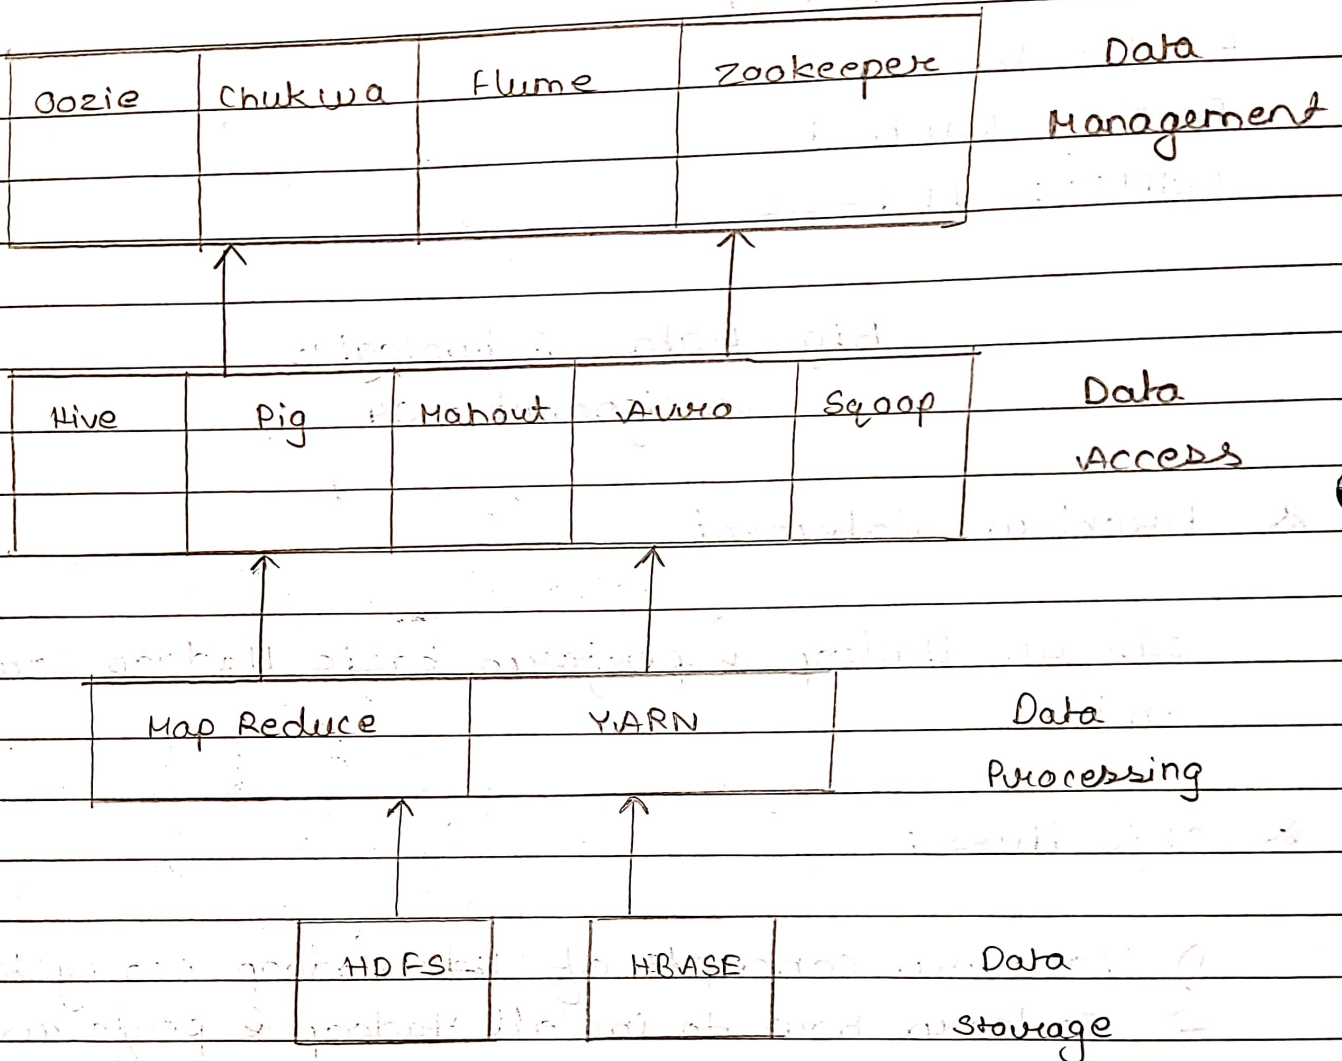 Oozie Chukwa Flume Zookeeper Data
Management
Hive Pig Mahout Avro Sqoop Data
Access
Map Reduce YARN Data
Processing
HDFS HBASE Data
Storage